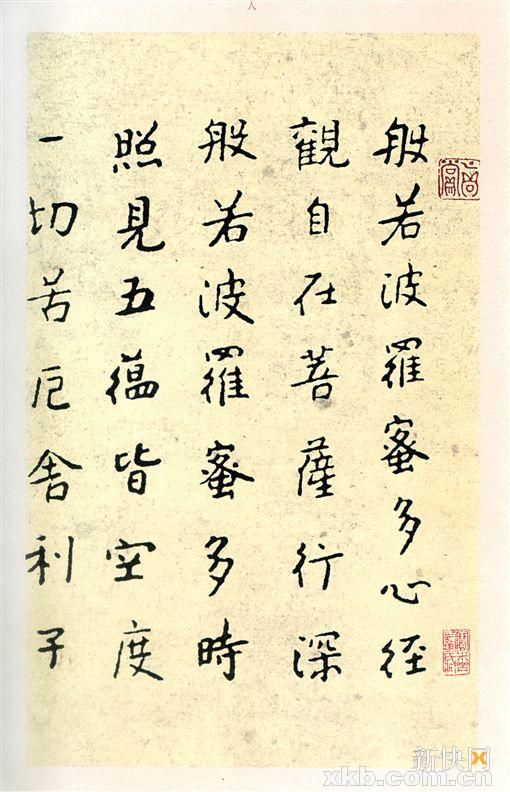 人
般若波羅蜜多心経
觀自在菩薩行深
般若波羅蜜多時
照見五蘊皆空度
一切苦厄舍利子
新快网
xkb.com.cn